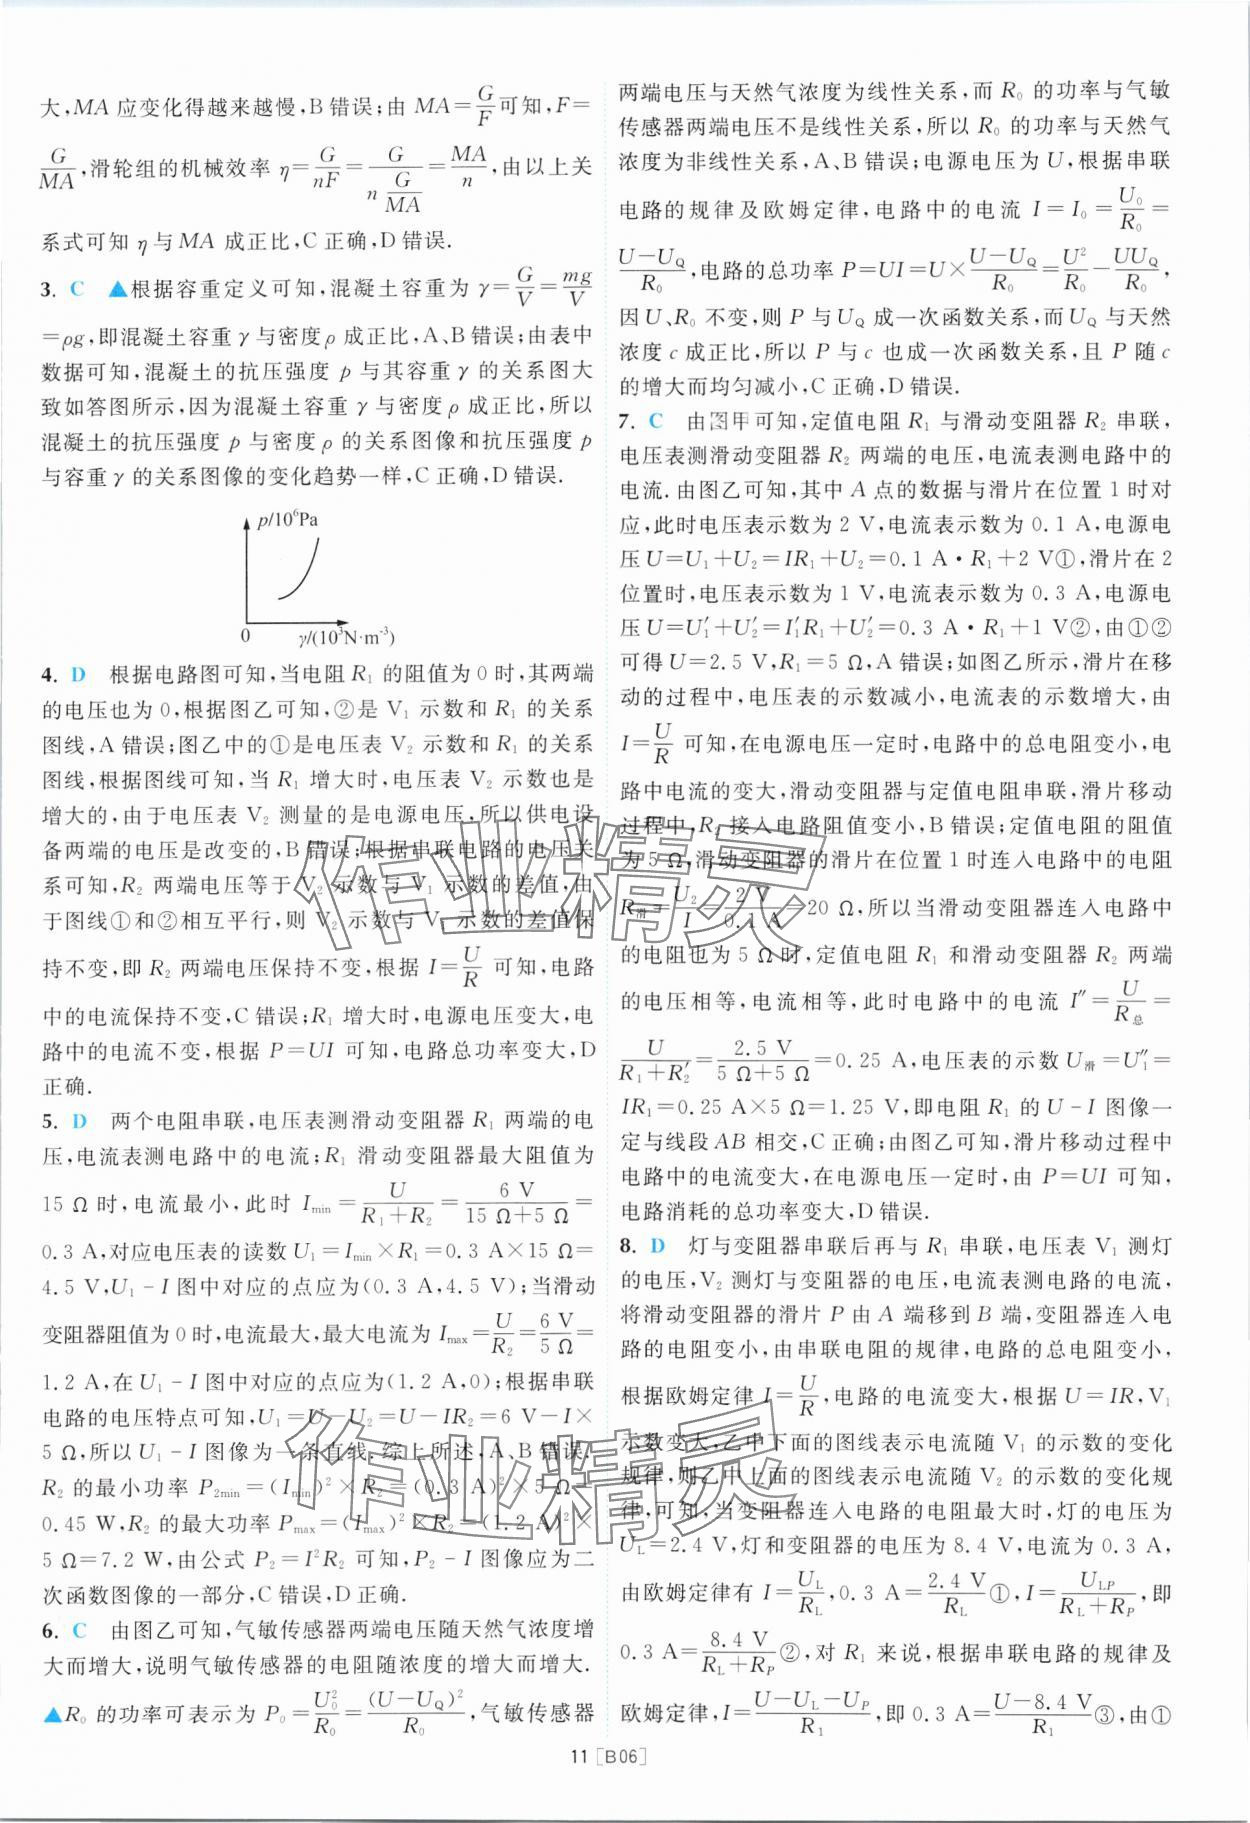 大,MA 应变化得越来越慢,B错误;由 MA=G/F可知,F=
G/MA,滑轮组的机械效率 η=G/nF=G/(n G/MA)=MA/n,由以上关
系式可知 η与MA 成正比,C正确,D错误.
3. C ▲根据容重定义可知,混凝土容重为 γ=G/V=mg/V
=ρg,即混凝土容重γ与密度ρ成正比,A、B错误;由表中
数据可知,混凝土的抗压强度 p 与其容重γ的关系图大
致如答图所示,因为混凝土容重γ与密度ρ成正比,所以
混凝土的抗压强度 p 与密度ρ的关系图像和抗压强度 p
与容重γ的关系图像的变化趋势一样,C正确,D错误.
p/10⁶Pa
0 γ/(10³N·m⁻³)
4. D 根据电路图可知,当电阻R₁的阻值为0时,其两端
的电压也为0,根据图乙可知,②是 V₁ 示数和R₁的关系
图线,A错误;图乙中的①是电压表 V₂ 示数和 R₁ 的关系
图线,根据图线可知,当 R₁ 增大时,电压表 V₂ 示数也是
增大的,由于电压表 V₂ 测量的是电源电压,所以供电设
备两端的电压是改变的,B错误;根据串联电路的电压关
系可知,R₂ 两端电压等于 V₂ 示数与 V₁ 示数的差值,由
于图线①和②相互平行,则 V₂ 示数与 V₁ 示数的差值保
持不变,即 R₂ 两端电压保持不变,根据 I=U/R 可知,电路
中的电流保持不变,C错误;R₁ 增大时,电源电压变大,电
路中的电流不变,根据 P=UI 可知,电路总功率变大,D
正确.
5. D 两个电阻串联,电压表测滑动变阻器 R₁ 两端的电
压,电流表测电路中的电流;R₁ 滑动变阻器最大阻值为
15 Ω时,电流最小,此时 Imin=U/(R₁+R₂)=6 V/(15 Ω+5 Ω)=
0.3 A,对应电压表的读数U₁=Imin×R₁=0.3 A×15 Ω=
4.5 V,U₁-I 图中对应的点应为(0.3 A,4.5 V);当滑动
变阻器阻值为0时,电流最大,最大电流为 Imax=U/R₂=6 V/5 Ω=
1.2 A,在U₁-I图中对应的点应为(1.2 A,0);根据串联
电路的电压特点可知,U₁=U-U₂=U-IR₂=6 V-I×
5 Ω,所以 U₁-I 图像为一条直线.综上所述,A、B错误.
R₂ 的最小功率 P₂min=(Imin)²×R₂=(0.3 A)²×5 Ω=
0.45 W,R₂ 的最大功率 Pmax=(Imax)²×R₂=(1.2 A)²×
5 Ω=7.2 W,由公式 P₂=I²R₂ 可知,P₂-I 图像应为二
次函数图像的一部分,C错误,D正确.
6. C 由图乙可知,气敏传感器两端电压随天然气浓度增
大而增大,说明气敏传感器的电阻随浓度的增大而增大.
▲R₀ 的功率可表示为 P₀=U₀²/R₀=(U-UQ)²/R₀,气敏传感器
两端电压与天然气浓度为线性关系,而 R₀ 的功率与气敏
传感器两端电压不是线性关系,所以 R₀ 的功率与天然气
浓度为非线性关系,A、B错误;电源电压为U,根据串联
电路的规律及欧姆定律,电路中的电流 I=I₀=U₀/R₀=
(U-UQ)/R₀,电路的总功率 P=UI=U×(U-UQ)/R₀=U²/R₀-UUQ/R₀,
因U、R₀ 不变,则 P 与UQ 成一次函数关系,而UQ 与天然
浓度c 成正比,所以 P 与 c 也成一次函数关系,且 P 随c
的增大而均匀减小,C正确,D错误.
7. C 由图甲可知,定值电阻 R₁ 与滑动变阻器 R₂ 串联,
电压表测滑动变阻器 R₂ 两端的电压,电流表测电路中的
电流.由图乙可知,其中 A 点的数据与滑片在位置1时对
应,此时电压表示数为 2 V,电流表示数为 0.1 A,电源电
压U=U₁+U₂=IR₁+U₂=0.1 A·R₁+2 V①,滑片在2
位置时,电压表示数为 1 V,电流表示数为 0.3 A,电源电
压U=U₁′+U₂′=I₁′R₁+U₂′=0.3 A·R₁+1 V②,由①②
可得U=2.5 V,R₁=5 Ω,A错误;如图乙所示,滑片在移
动的过程中,电压表的示数减小,电流表的示数增大,由
I=U/R 可知,在电源电压一定时,电路中的总电阻变小,电
路中电流的变大,滑动变阻器与定值电阻串联,滑片移动
过程中,R₂ 接入电路阻值变小,B错误;定值电阻的阻值
为5 Ω,滑动变阻器的滑片在位置1时连入电路中的电阻
R滑=U₂/I=2 V/0.1 A=20 Ω,所以当滑动变阻器连入电路中
的电阻也为 5 Ω时,定值电阻 R₁ 和滑动变阻器 R₂ 两端
的电压相等,电流相等,此时电路中的电流 I″=U/R总=
U/(R₁+R₂′)=2.5 V/(5 Ω+5 Ω)=0.25 A,电压表的示数U滑=U₁″=
IR₁=0.25 A×5 Ω=1.25 V,即电阻 R₁ 的U-I 图像一
定与线段AB 相交,C正确;由图乙可知,滑片移动过程中
电路中的电流变大,在电源电压一定时,由 P=UI 可知,
电路消耗的总功率变大,D错误.
8. D 灯与变阻器串联后再与 R₁ 串联,电压表 V₁ 测灯
的电压,V₂ 测灯与变阻器的电压,电流表测电路的电流,
将滑动变阻器的滑片 P 由 A 端移到 B 端,变阻器连入电
路的电阻变小,由串联电阻的规律,电路的总电阻变小,
根据欧姆定律 I=U/R,电路的电流变大,根据U=IR,V₁
示数变大,乙中下面的图线表示电流随 V₁ 的示数的变化
规律,则乙中上面的图线表示电流随 V₂ 的示数的变化规
律,可知,当变阻器连入电路的电阻最大时,灯的电压为
UL=2.4 V,灯和变阻器的电压为 8.4 V,电流为 0.3 A,
由欧姆定律有 I=UL/RL,0.3 A=2.4 V/RL①,I=ULP/(RL+RP),即
0.3 A=8.4 V/(RL+RP)②,对 R₁ 来说,根据串联电路的规律及
欧姆定律,I=(U-UL-UP)/R₁,即 0.3 A=(U-8.4 V)/R₁③,由①
作业精灵
作业精灵
11[B06]